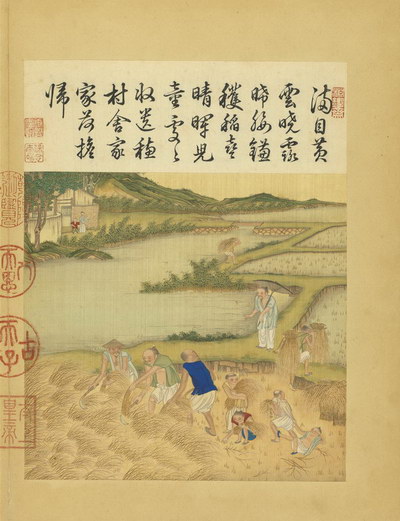 滿目黄
雲曉露
晞腰鎌
穫稻喜
晴暉兒
童處々
收遺穗
村舍家
家荷擔
歸